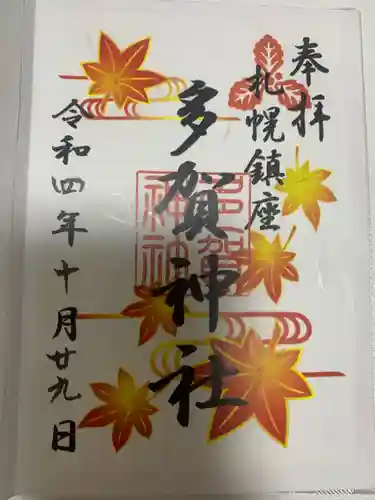 奉拝
札幌鎮座
多賀神社
令和四年十月廿九日
多賀神社